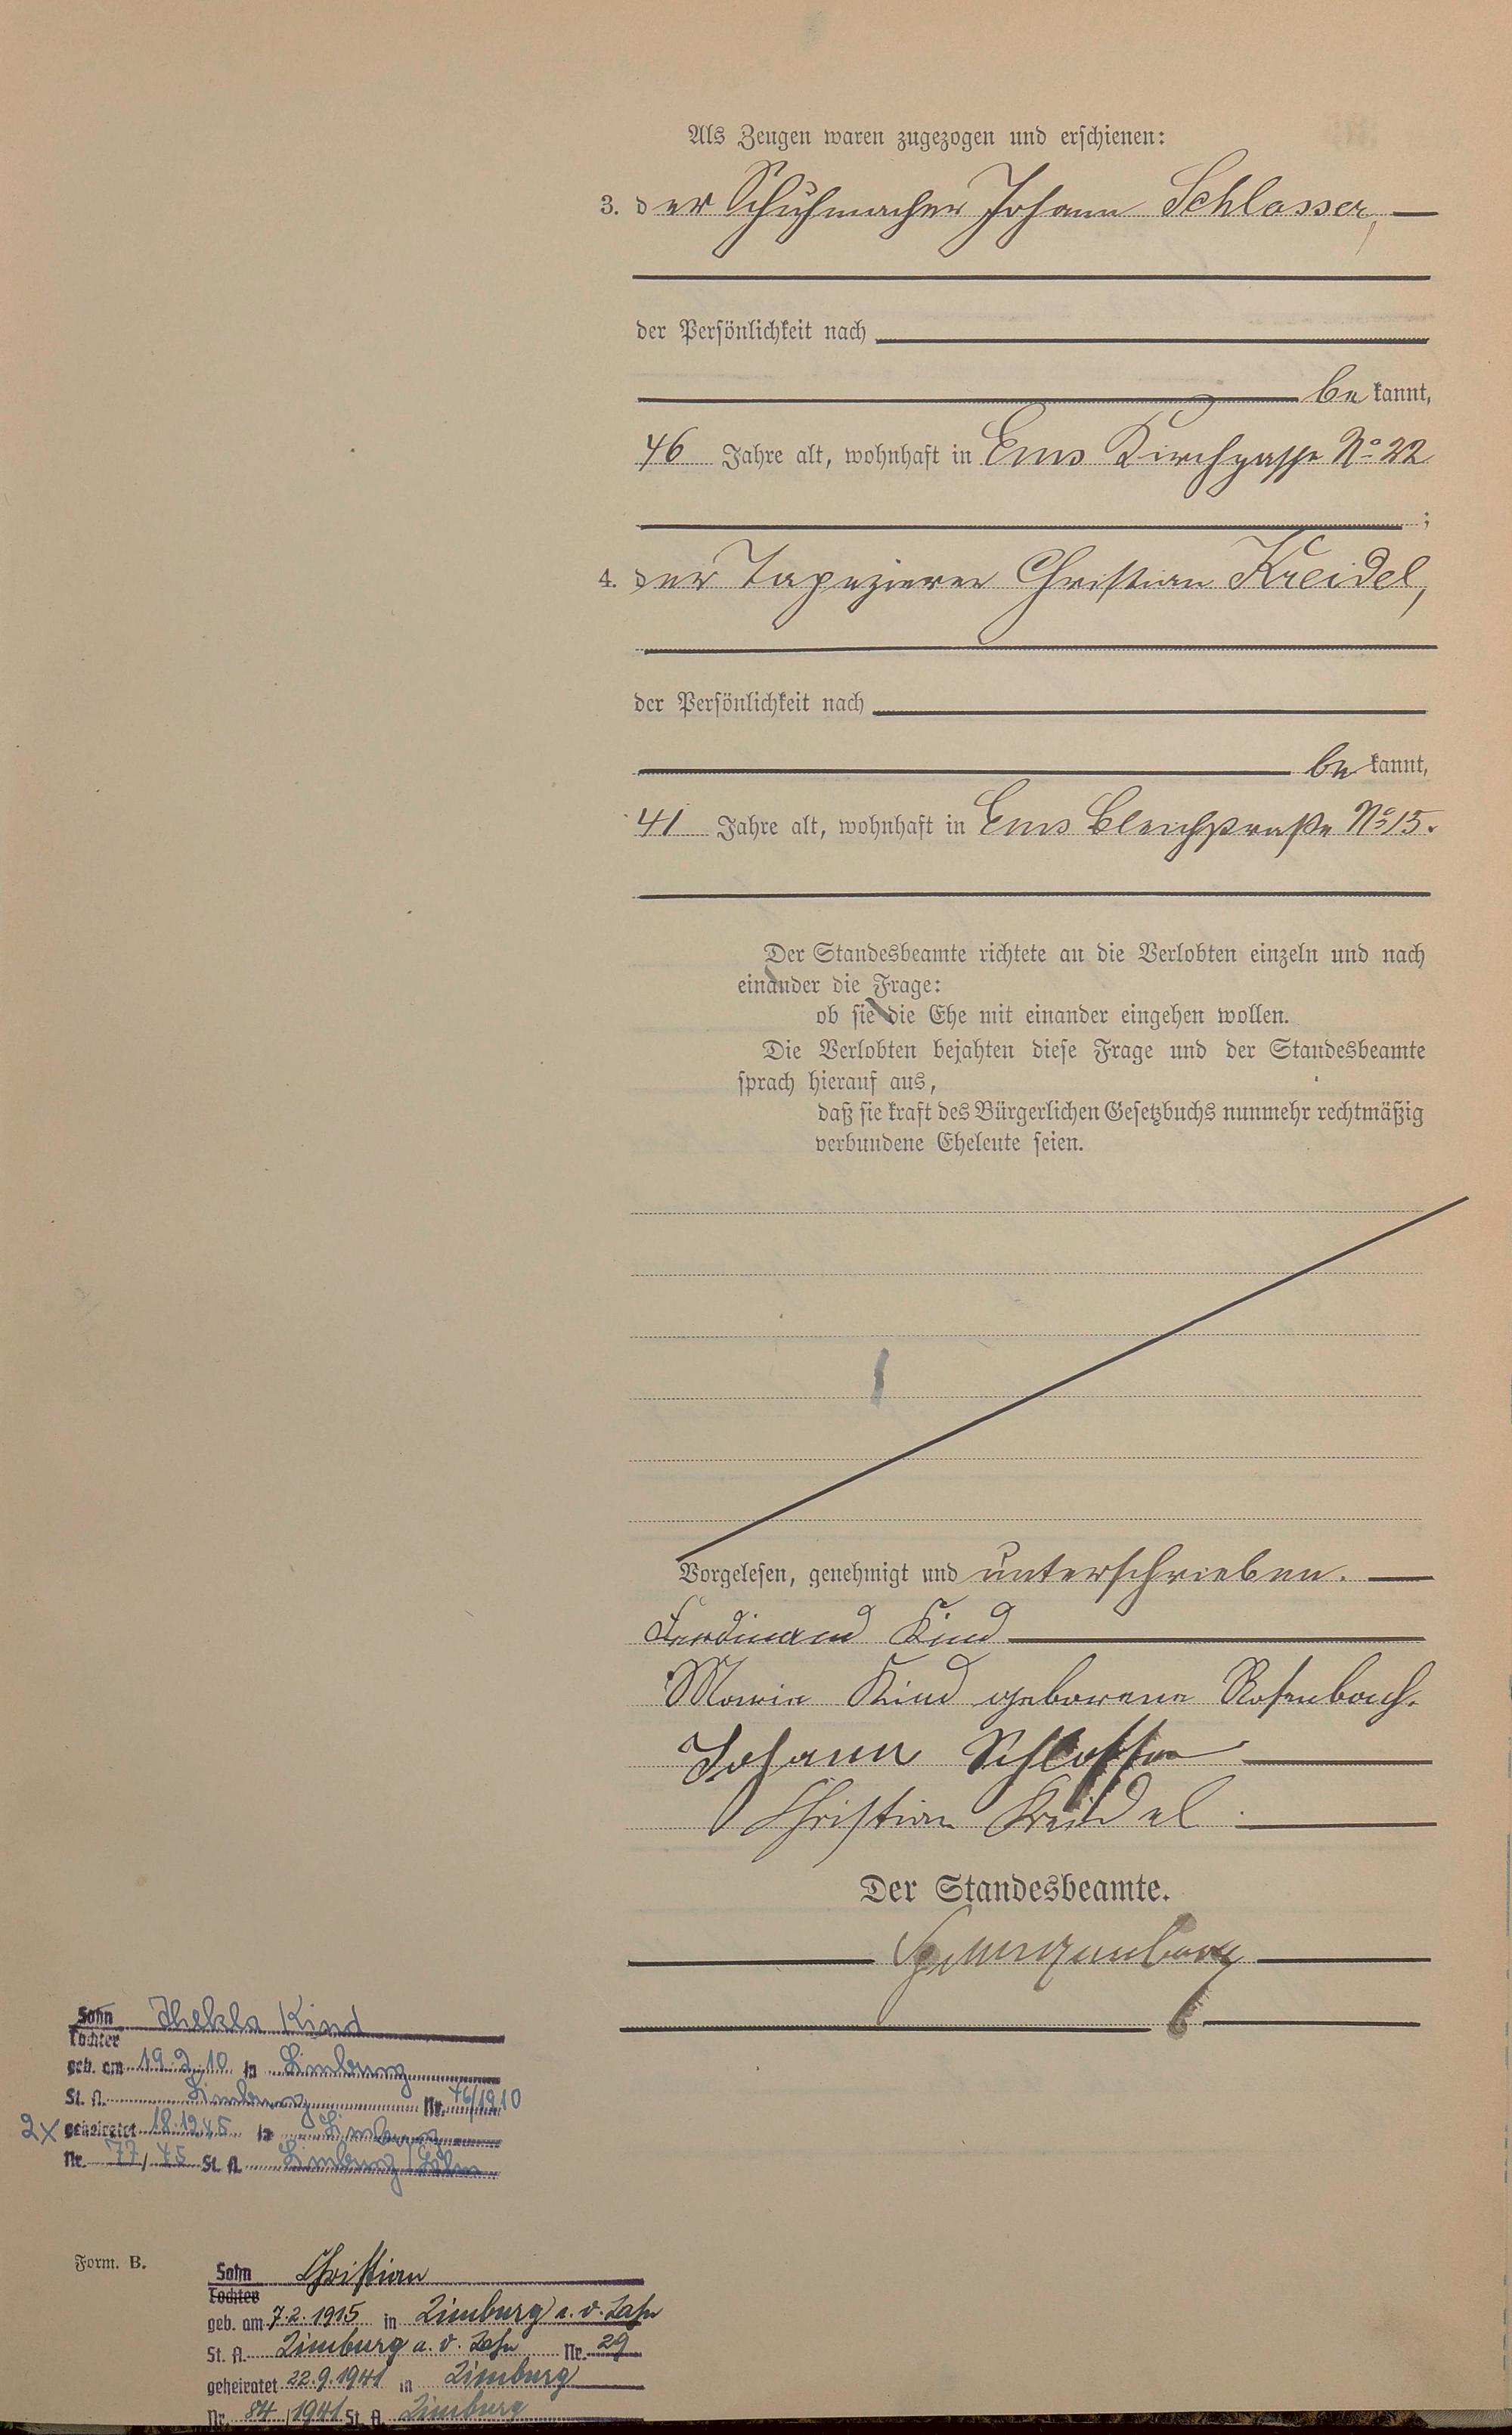 Als Zeugen waren zugezogen und erschienen:
3. der Schuhmacher Johann Schlosser,
der Persönlichkeit nach
bekannt,
46 Jahre alt, wohnhaft in Ems Kirchgasse No 22
;
4. der Tapezierer Christian Kreidel,
der Persönlichkeit nach
bekannt,
41 Jahre alt, wohnhaft in Ems Bleichstraße No 15.
Der Standesbeamte richtete an die Verlobten einzeln und nach
einander die Frage:
ob sie die Ehe mit einander eingehen wollen.
Die Verlobten bejahten diese Frage und der Standesbeamte
sprach hierauf aus,
daß sie kraft des Bürgerlichen Gesetzbuchs nunmehr rechtmäßig
verbundene Eheleute seien.
Vorgelesen, genehmigt und unterschrieben.
Ferdinand Kind
Maria Kind geborene Rosenbach.
Johann Schlosser
Christian Kreidel
Der Standesbeamte.
Sohn Thekla Kind
Tochter
geb. am 19.2.10 in Limburg
St. A. Limburg Nr. 76/1910
2x geheiratet 18.12.45 in Limburg
Nr. 77/45 St. A. Limburg/Lahn
Form. B.
Sohn Christian
Tochter
geb. am 7.2.1915 in Limburg a. d. Lahn
St. A. Limburg a. d. Lahn Nr. 29
geheiratet 22.9.1941 in Limburg
Nr. 84/1941 St. A. Limburg